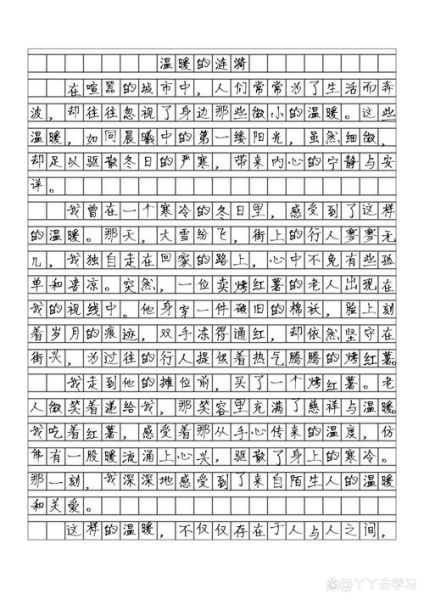 温暖的涟漪
在喧嚣的城市中，人们常常为了生活而奔
波，却往往忽视了身边那些微小的温暖。这些
温暖，如同晨曦中的第一缕阳光，虽然细微，
却足以驱散冬日的严寒，带来内心的宁静与安
详。
我曾在一个寒冷的冬日里，感受到了这样
的温暖。那天，大雪纷飞，街上的行人寥寥无
几，我独自走在回家的路上，心中不免有些孤
单和凄凉。突然，一位卖烤红薯的老人出现在
我的视线中。他身穿一件破旧的棉袄，脸上刻
着岁月的痕迹，双手冻得通红，却依然坚守在
街头，为过往的行人提供着热气腾腾的烤红薯。
我走到他的摊位前，买了一个烤红薯。老
人微笑着递给我，那笑容里充满了慈祥与温暖。
我吃着红薯，感受着那从手心传来的温度，仿
佛有一股暖流涌上心头，驱散了身上的寒冷。
那一刻，我深深地感受到了来自陌生人的温暖
和关爱。
这样的温暖，不仅仅存在于人与人之间，
@丫丫去学习